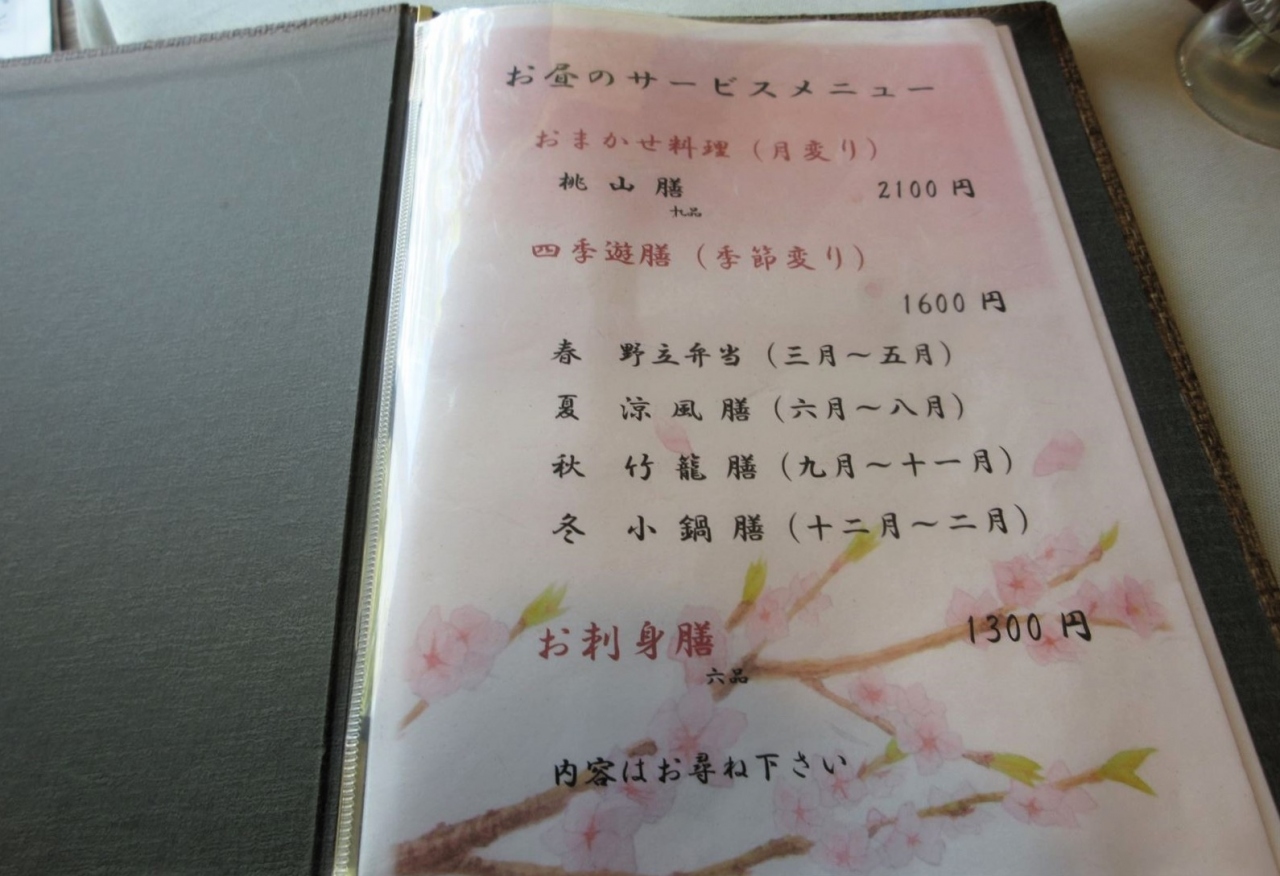 お昼のサービスメニュー
おまかせ料理（月変り）
桃山膳 2100円
九品
四季遊膳（季節変り）
1600円
春 野立弁当（三月～五月）
夏 涼風膳（六月～八月）
秋 竹籠膳（九月～十一月）
冬 小鍋膳（十二月～二月）
お刺身膳 1300円
六品
内容はお尋ね下さい